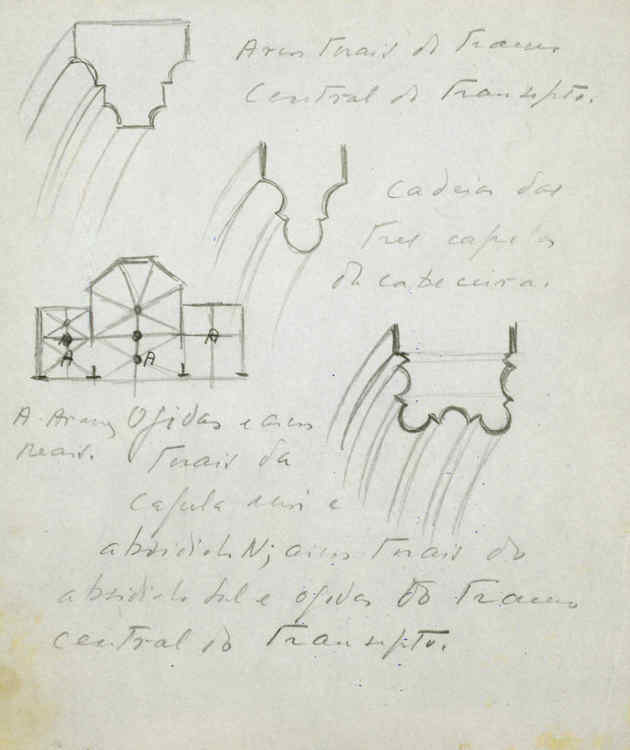 Arcos torais do tramo
central do transepto.
cadeias das
tres capelas
da cabeceira.
A
A
A
A. Arcos Ogivas e arcos
reais. torais da
capela mor e
absidiola N; arcos torais do
absidiolo Sul e ogivas do tramo
central do transepto.